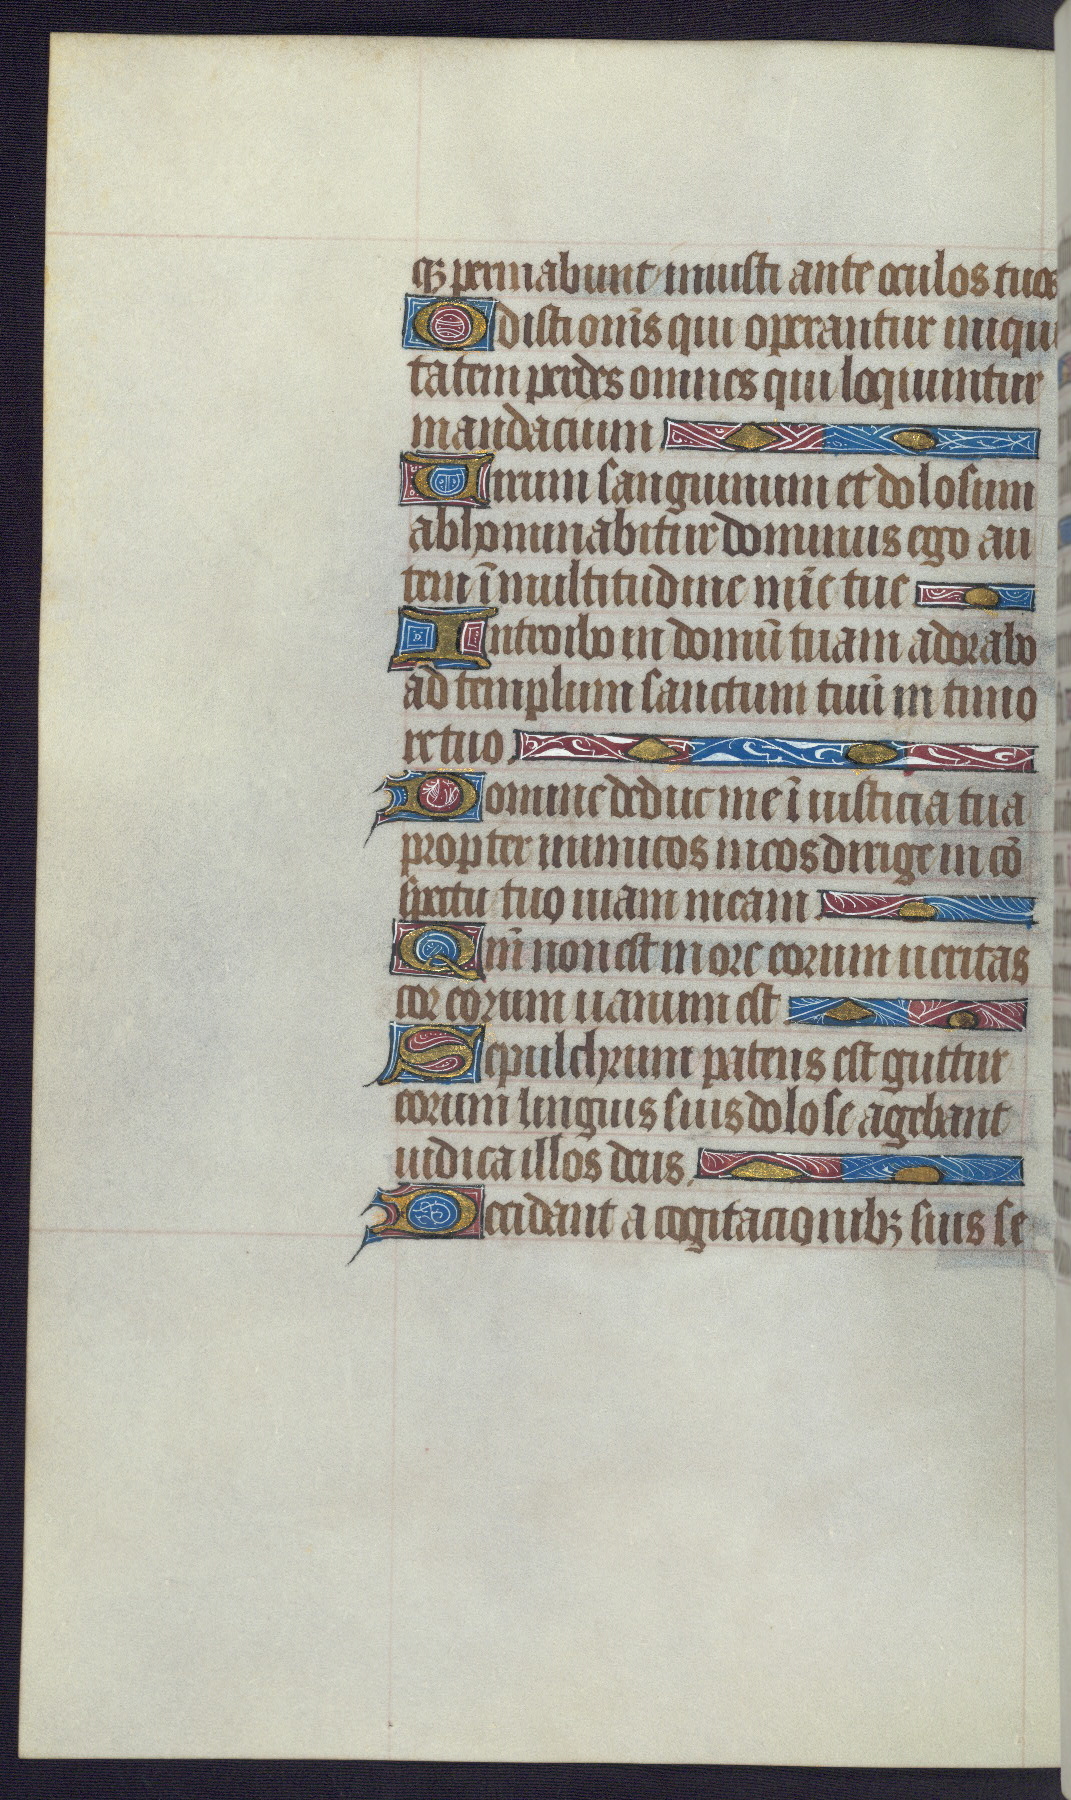 qꝫ permabunt iniusti ante oculos tuos
Odisti om̄s qui operantur iniqui
tatem perdes omnes qui loquuntur
mandacium
Uirum sanguinum et dolosum
abhominabitur dominus ego au
tem ī multitudine mīe tue
Introibo in domū tuam adorabo
ad templum sanctum tuū in timo
re tuo
Domine deduc me ī iusticia tua
propter inimicos meos dirige in cō
spectu tuo uiam meam
Qm̄ non est in ore eorum ueritas
cor eorum uanum est
Sepulchrum patens est guttur
eorum linguis suis dolose agebant
iudica illos deus
Decidant a cogitacionibꝫ suis se